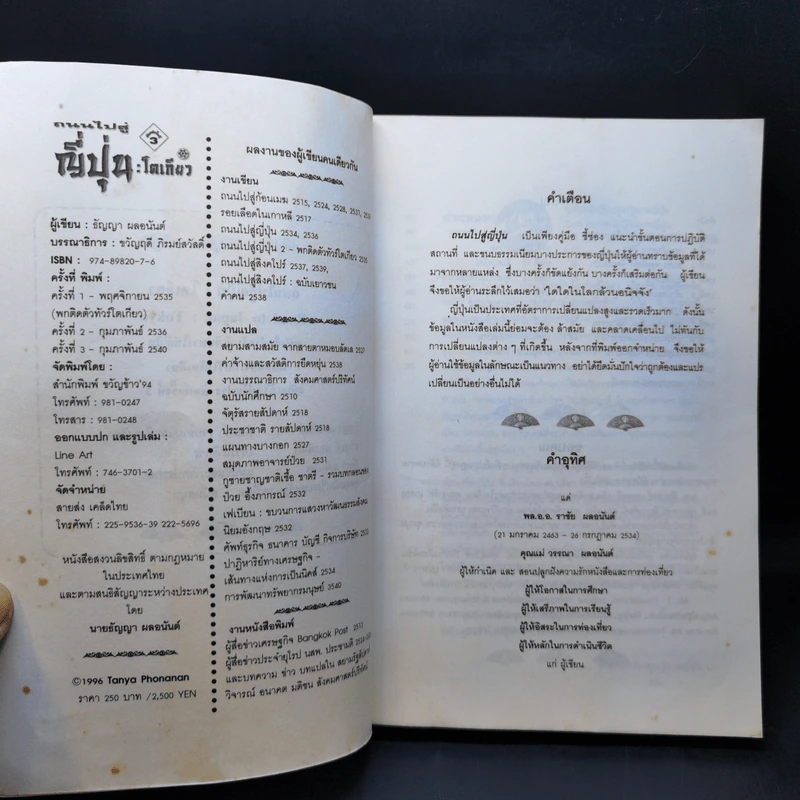 ถนนไปสู่
3
ญี่ปุ่น:โตเกียว
ผู้เขียน : ธัญญา ผลอนันต์
บรรณาธิการ : ขวัญฤดี ภิรมย์สวัสดิ์
ISBN : 974-89820-7-6
ครั้งที่ พิมพ์ :
ครั้งที่ 1 - พฤศจิกายน 2535
(พกติดตัวทัวร์โตเกียว)
ครั้งที่ 2 - กุมภาพันธ์ 2536
ครั้งที่ 3 - กุมภาพันธ์ 2540
จัดพิมพ์โดย :
สำนักพิมพ์ ขวัญข้าว'94
โทรศัพท์ : 981-0247
โทรสาร : 981-0248
ออกแบบปก และรูปเล่ม :
Line Art
โทรศัพท์ : 746-3701-2
จัดจำหน่าย
สายส่ง เคล็ดไทย
โทรศัพท์ : 225-9536-39 222-5696
หนังสือสงวนลิขสิทธิ์ ตามกฎหมาย
ในประเทศไทย
และตามสนธิสัญญาระหว่างประเทศ
โดย
นายธัญญา ผลอนันต์
©1996 Tanya Phonanan
ราคา 250 บาท /2,500 YEN
ผลงานของผู้เขียนคนเดียวกัน
งานเขียน
ถนนไปสู่ก้อนเมฆ 2515, 2524, 2528, 2531, 2536
รอยเลือดในเกาหลี 2517
ถนนไปสู่ญี่ปุ่น 2534, 2536
ถนนไปสู่ญี่ปุ่น 2 - พกติดตัวทัวร์โตเกียว 2535
ถนนไปสู่สิงคโปร์ 2537, 2539,
ถนนไปสู่สิงคโปร์ : ฉบับเยาวชน
คำคน 2538
งานแปล
สยามสามสมัย จากสายตาหมอบลัดเล 2537
ค่าจ้างและสวัสดิการยืดหยุ่น 2538
งานบรรณาธิการ สังคมศาสตร์ปริทัศน์
ฉบับนักศึกษา 2510
จัตุรัสรายสัปดาห์ 2518
ประชาชาติ รายสัปดาห์ 2518
แผนทางบางกอก 2527
สมุดภาพอาจารย์ป๋วย 2531
กูชายชาญชาติเชื้อ ชาตรี - รวมบทกลอนของ
ป๋วย อึ๊งภากรณ์ 2532
เฟเบียน : ขบวนการแสวงหาวัฒนธรรมสังคม
นิยมอังกฤษ 2532
ศัพท์ธุรกิจ ธนาคาร บัญชี กิจการบริษัท 2533
ปาฏิหาริย์ทางเศรษฐกิจ -
เส้นทางแห่งการเป็นนิคส์ 2534
การพัฒนาทรัพยากรมนุษย์ 3540
งานหนังสือพิมพ์
ผู้สื่อข่าวเศรษฐกิจ Bangkok Post 2513
ผู้สื่อข่าวประจำยุโรป นสพ. ประชามติ
และบทความ ข่าว บทแปลใน สยามรัฐสัปดาห์
วิจารณ์ อนาคต มติชน สังคมศาสตร์ปริทัศน์
คำเตือน
ถนนไปสู่ญี่ปุ่น เป็นเพียงคู่มือ ชี้ช่อง แนะนำขั้นตอนการปฏิบัติ
สถานที่ และขนบธรรมเนียมบางประการของญี่ปุ่นให้ผู้อ่านทราบข้อมูลที่ได้
มาจากหลายแหล่ง ซึ่งบางครั้งก็ขัดแย้งกัน บางครั้งก็เสริมต่อกัน ผู้เขียน
จึงขอให้ผู้อ่านระลึกไว้เสมอว่า "ใดใดในโลกล้วนอนิจจัง"
ญี่ปุ่นเป็นประเทศที่อัตราการเปลี่ยนแปลงสูงและรวดเร็วมาก ดังนั้น
ข้อมูลในหนังสือเล่มนี้ย่อมจะต้อง ล้าสมัย และคลาดเคลื่อนไป ไม่ทันกับ
การเปลี่ยนแปลงต่าง ๆ ที่เกิดขึ้น หลังจากที่พิมพ์ออกจำหน่าย จึงขอให้
ผู้อ่านใช้ข้อมูลในลักษณะเป็นแนวทาง อย่าได้ยึดมั่นปักใจว่าถูกต้องและแปร
เปลี่ยนเป็นอย่างอื่นไม่ได้
คำอุทิศ
แด่
พล.อ.อ. ราชัย ผลอนันต์
(21 มกราคม 2463 - 26 กรกฎาคม 2534)
คุณแม่ วรรณา ผลอนันต์
ผู้ให้กำเนิด และ สอนปลูกฝังความรักหนังสือและการท่องเที่ยว
ผู้ให้โอกาสในการศึกษา
ผู้ให้เสรีภาพในการเรียนรู้
ผู้ให้อิสระในการท่องเที่ยว
ผู้ให้หลักในการดำเนินชีวิต
แก่ ผู้เขียน